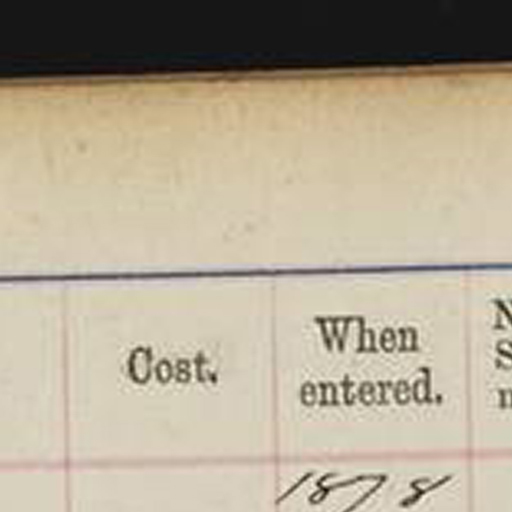 Cost.
When
entered.
1878